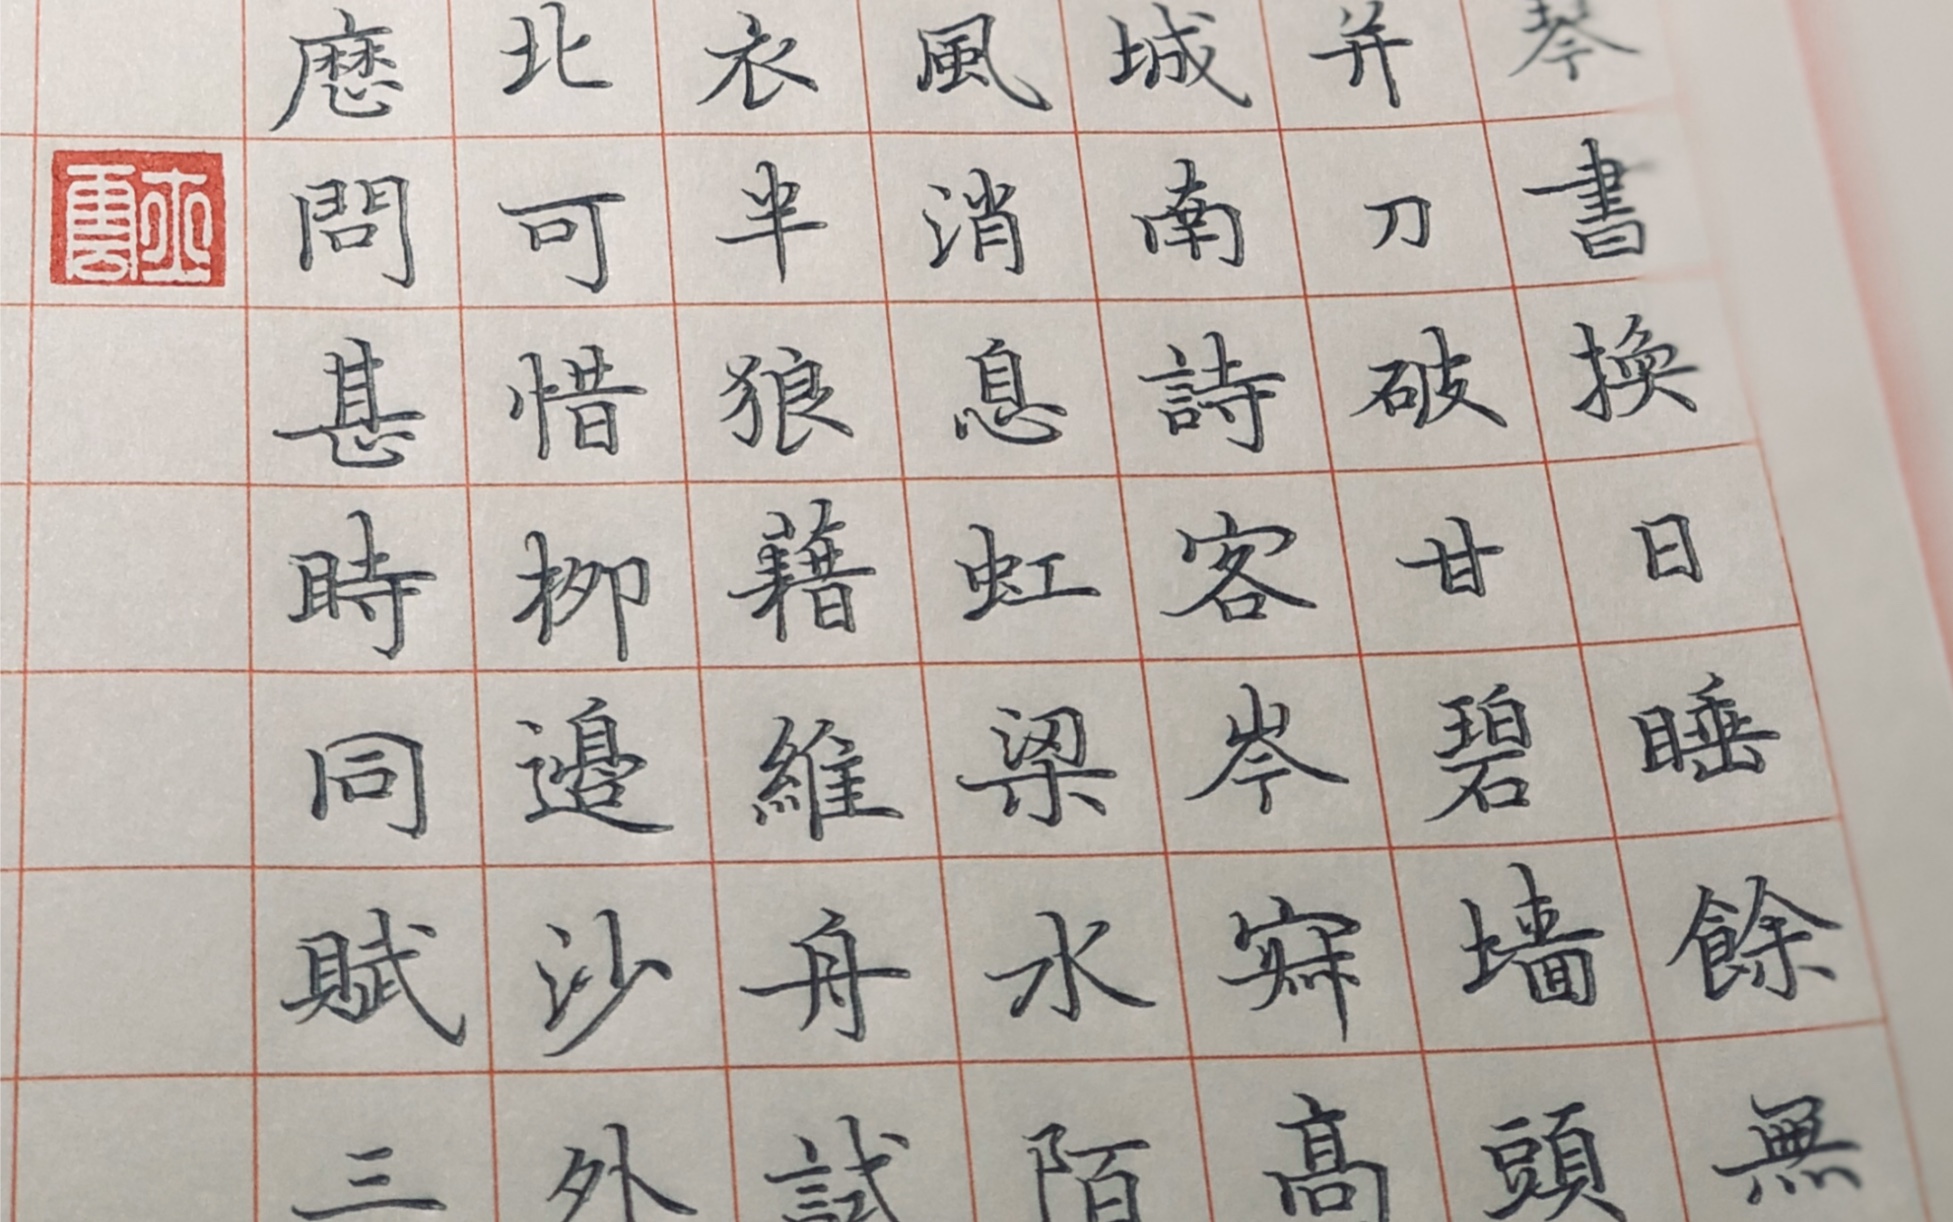 琴書換日睡餘無
并刀破甘碧墻頭
城南詩客岑寂高
風消息虹梁水陌
衣半狼藉維舟試
北可惜柳邊沙外
歷問甚時同賦三